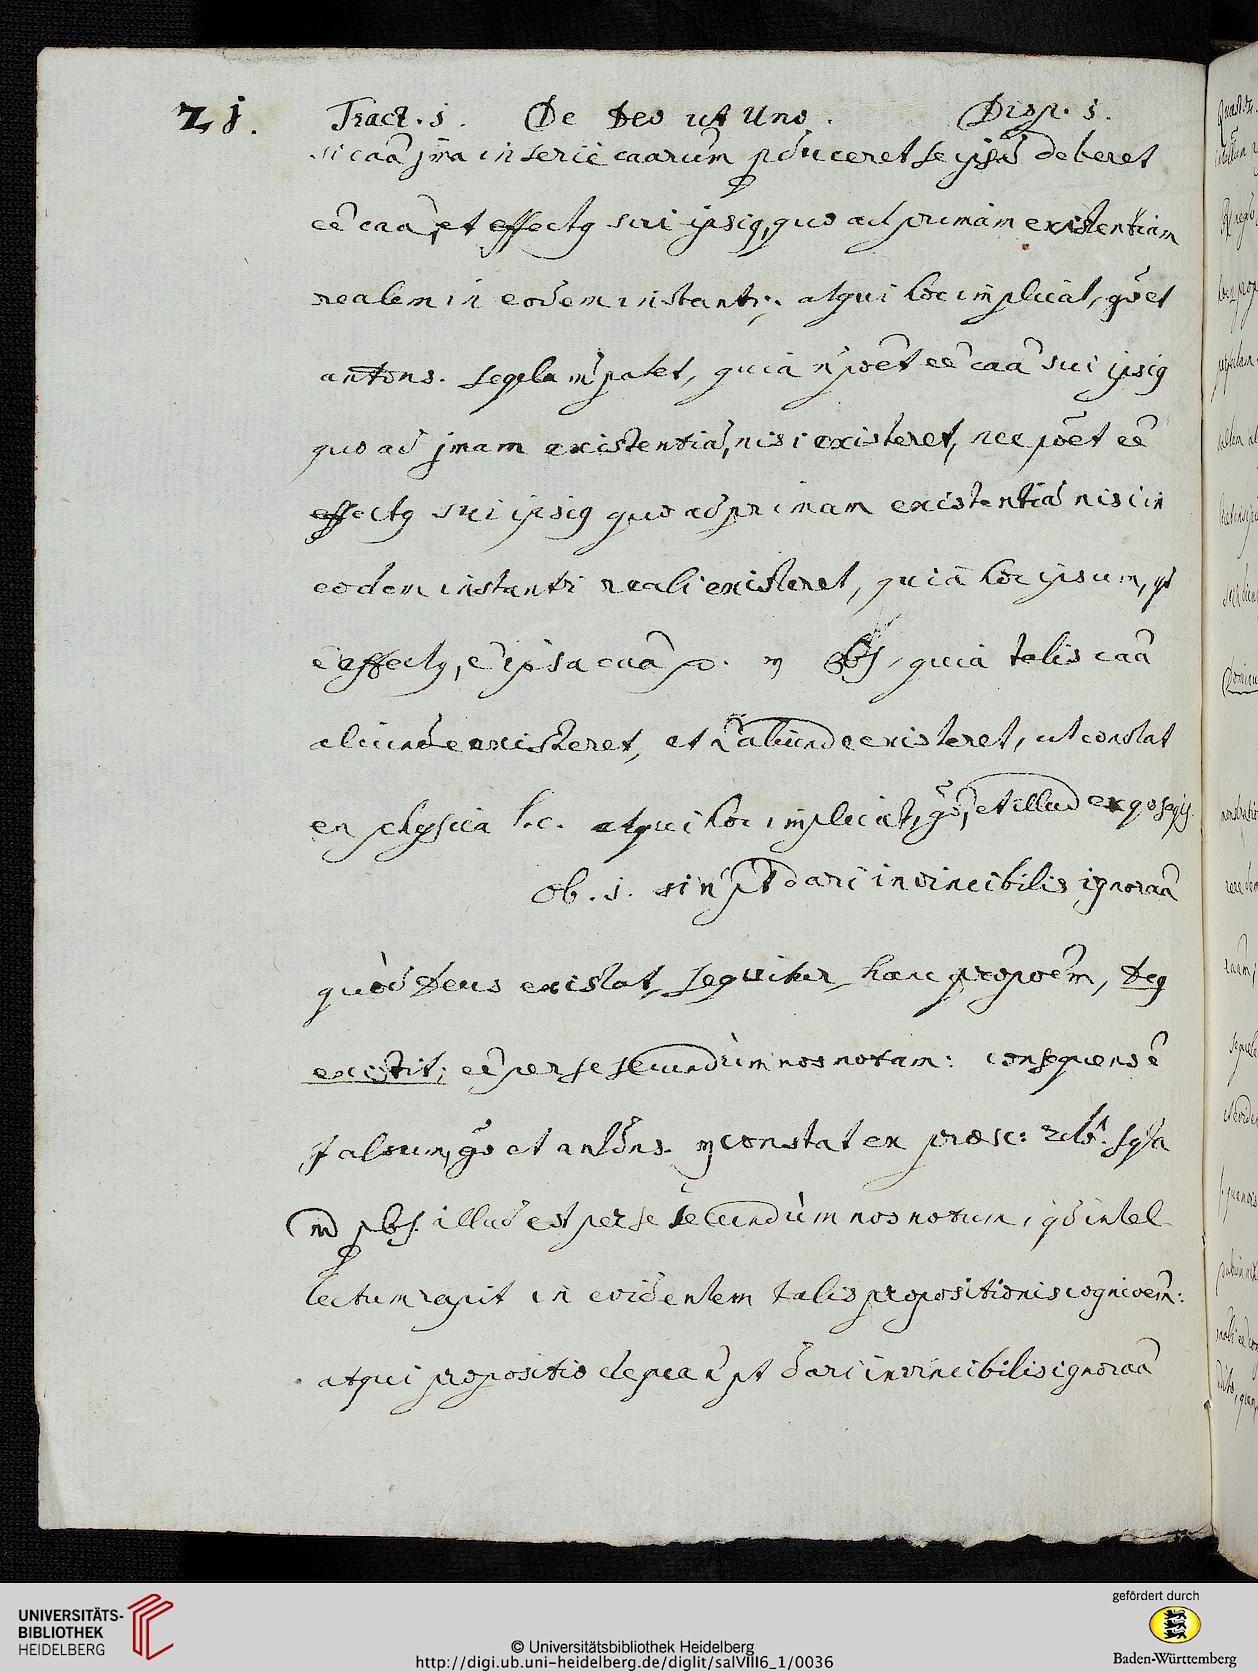 21. Tract. j. De Deo ut Uno. Disp. j.
si caã jma in serie caarum pduceret se ipsũ deberet
eẽ caã, et effectq sui ipsiq, quo ad primam existentiam
realem in eodem instanti; atqui hoc implicat, gõ et
antdns. seqla m̃ patet, quia ñ poẽt eẽ caã sui ipsiq
quo ad jmam existentiã, nisi existeret, nec poẽt eẽ
effectq sui ipsiq quo ad primam existentiã nisi in
eodem instanti reali existeret, quia hoc ipsum, qd
ẽ effectq, ẽ ipsa caã quia talis caã
aliunde existeret, et ñ aliunde existeret, ut constat
ex physica l.c. atqui hoc implicat, gõ, et illud ex quo
Ob. j. si ñ pt dari invincibilis ignoraã
quòd Deus existat, sequitur hanc propoẽm, Deq
existit; eẽ per se secundùm nos notam: consequens ẽ
falsum, gõ et antdns. m constat ex praesc: sqla
m̃ pbr. illud est per se secundùm nos notum, qd intel
lectum rapit in evidentem talis propositionis cognioẽm:
atqui propositio de qua ñ pt dari invincibilis ignoraã
UNIVERSITÄTS-
BIBLIOTHEK
HEIDELBERG
© Universitätsbibliothek Heidelberg
http://digi.ub.uni-heidelberg.de/diglit/salVIII6_1/0036
gefördert durch
Baden-Württemberg